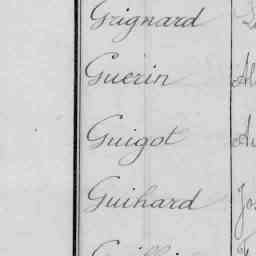 Grignard
Guerin
Guigot
Guihard